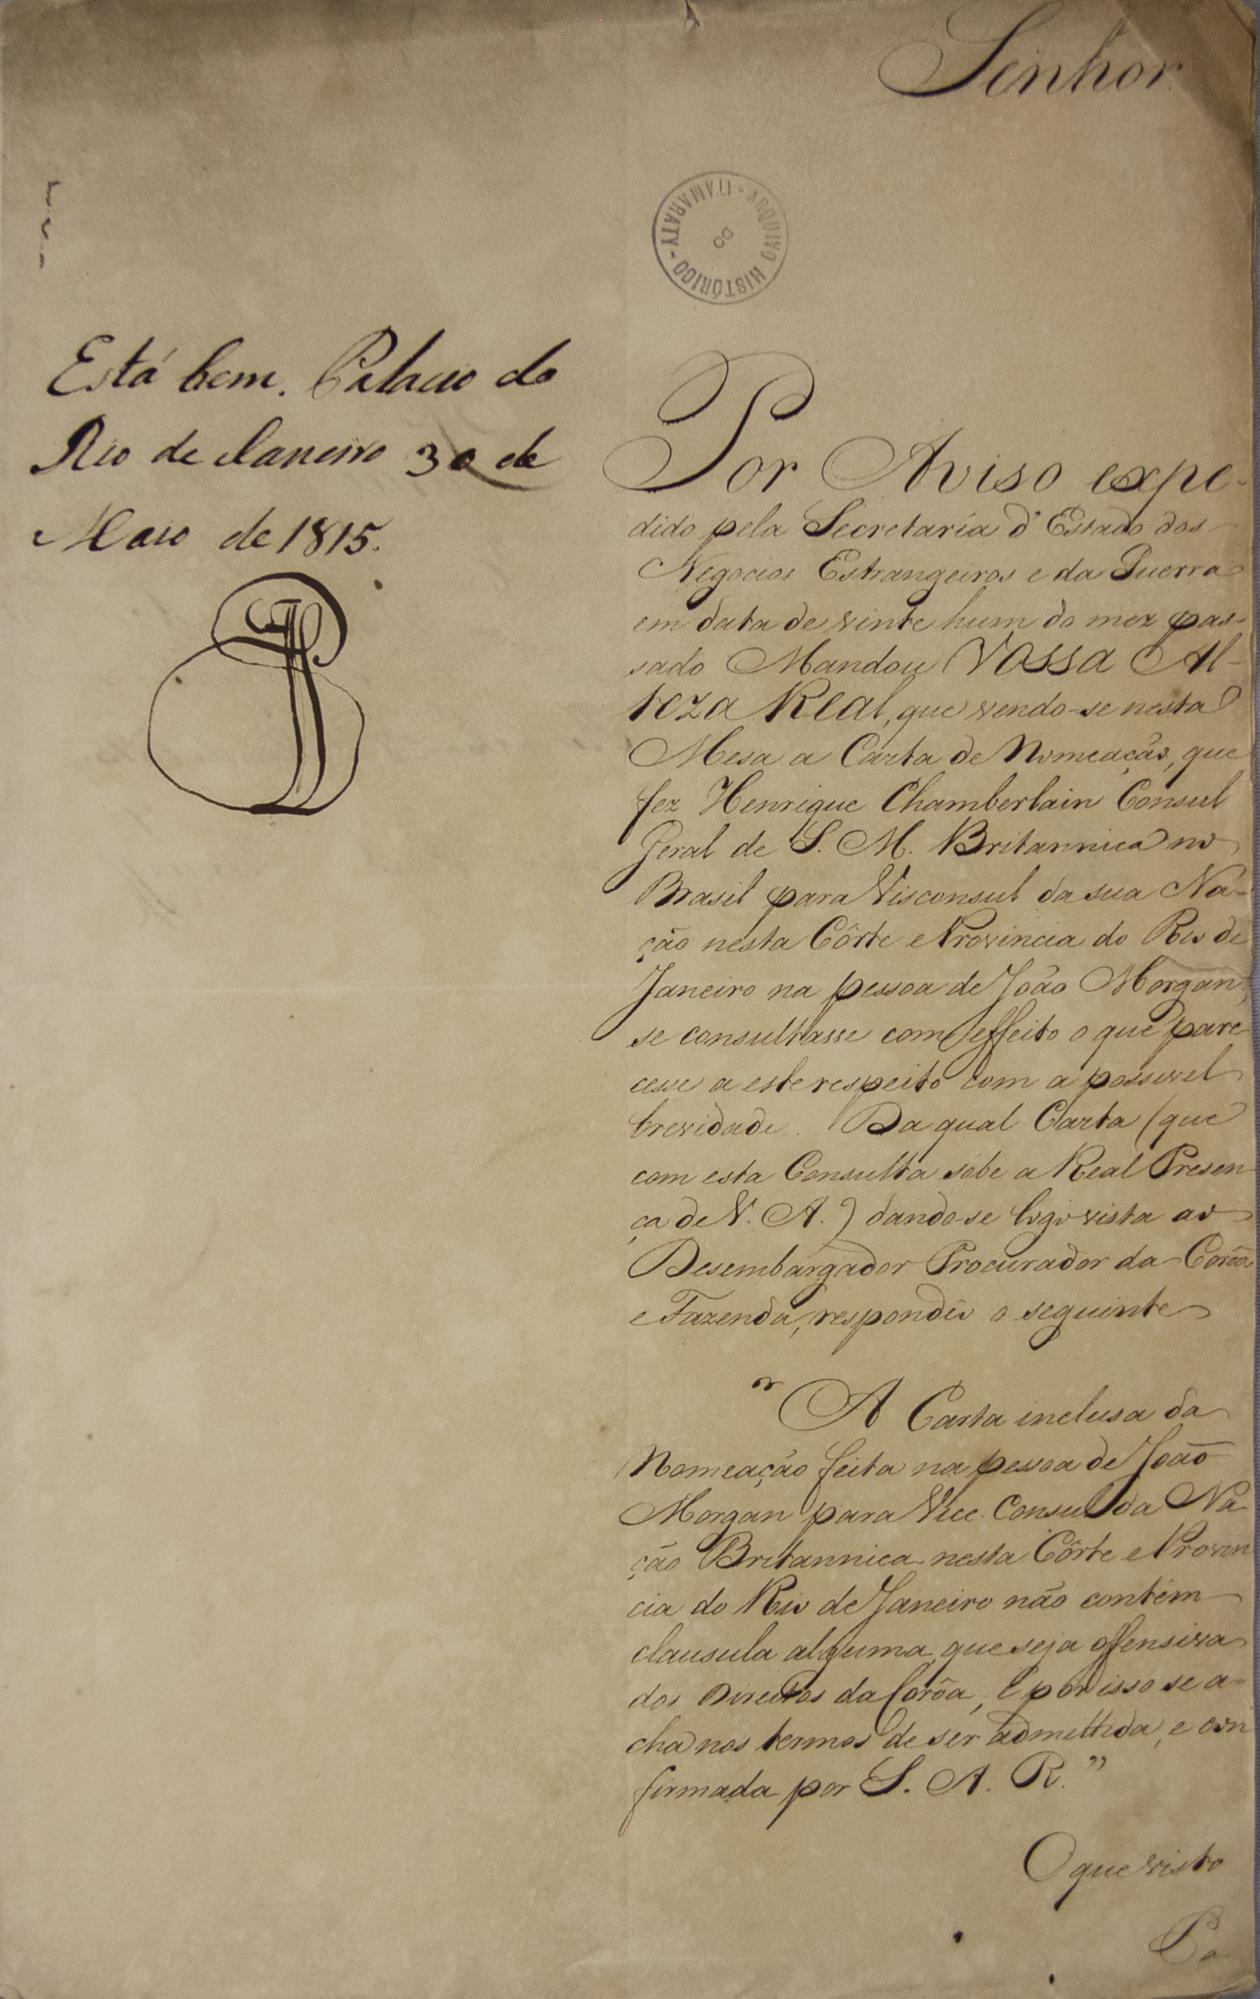 Senhor
ARQUIVO HISTÓRICO - ITAMARATY -
Está bem. Palacio do
Rio de Janeiro 30 de
Maio de 1815.
Por Aviso expe-
dido pela Secretaría d'Estado dos
Negocios Estrangeiros e da Guerra
em data de vinte hum do mez pas-
sado Mandou Vossa Al-
teza Real, que vendo-se nesta
Mesa a Carta de Nomeação, que
fez Henrique Chamberlain Consul
Geral de S. M. Britannica no
Brasil para Visconsul da sua Na-
ção nesta Côrte e Provincia do Rio de
Janeiro na pessoa de João Morgan,
se consultasse com effeito o que pare
cesse a este respeito com a possivel
brevidade. Da qual Carta (que
com esta Consulta sóbe a Real Presen
ça de V. A.) dando-se logo vista ao
Desembargador Procurador da Corôa
e Fazenda, respondêo o seguinte
" A Carta inclusa da
Nomeação feita na pessoa de João
Morgan para Vice-Consul da Na
ção Britannica nesta Côrte e Provin
cia do Rio de Janeiro não contêm
clausula alguma, que seja offensiva
dos Direitos da Corôa, e por isso se a-
cha nos termos de ser admittida, e con
firmada por S. A. R."
O que visto